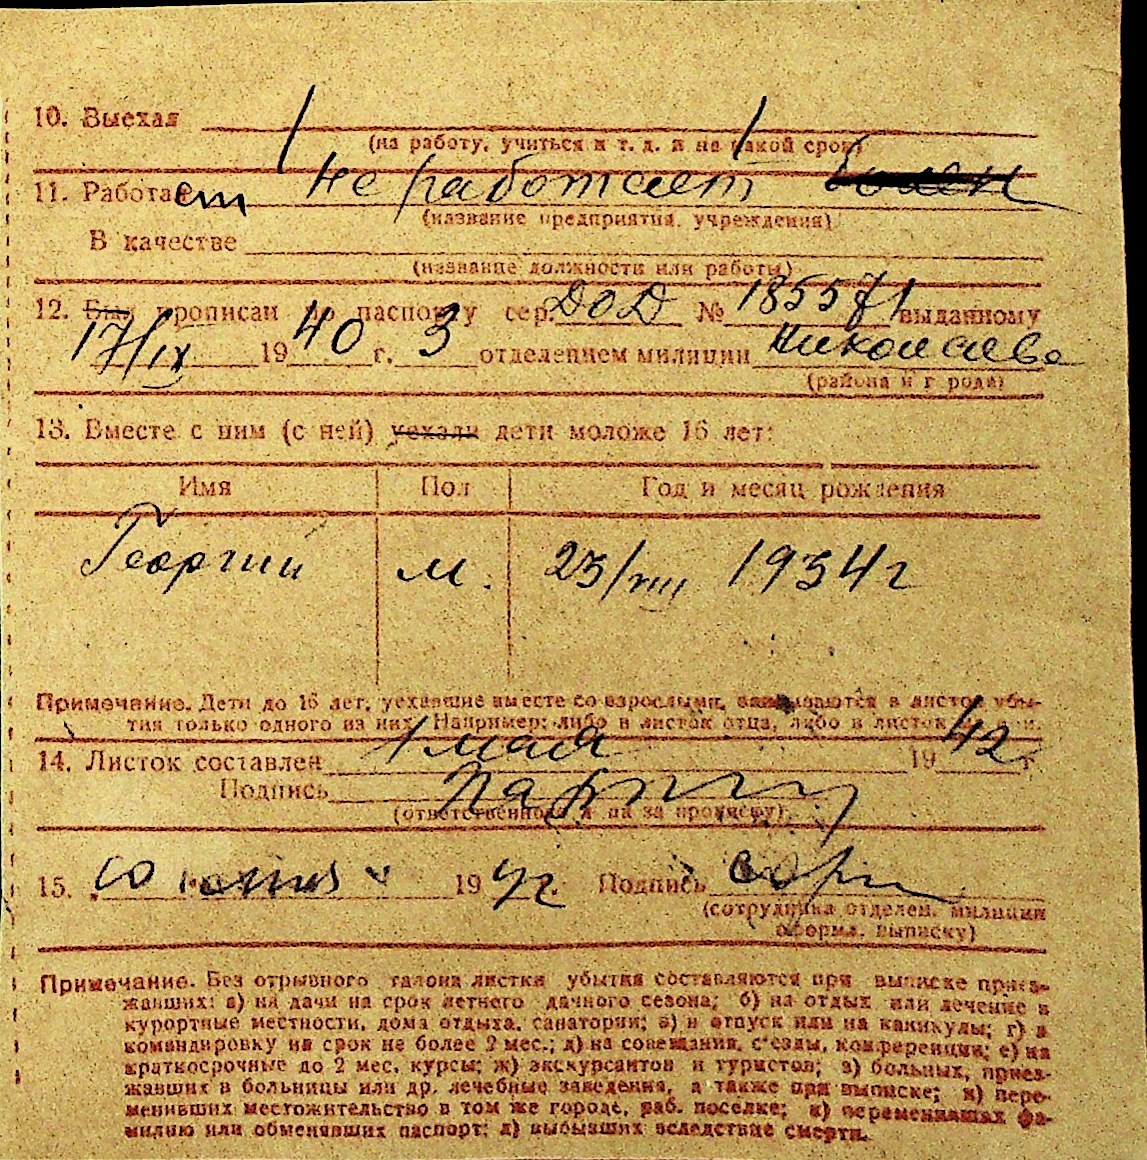 10. Выехал
(на работу, учиться и т. д. и на какой срок)
11. Работает не работает
(название предприятия, учреждения)
В качестве
(название должности или работы)
12. Был прописан по паспорту сер. ДОД № 185571 выданному
17/IX 1940 г. 3 отделением милиции Николаева
(района и города)
13. Вместе с ним (с ней) уехали дети моложе 16 лет:
Имя Пол Год и месяц рождения
Георгий м. 23/VIII 1934 г
Примечание. Дети до 16 лет, уехавшие вместе со взрослыми, вписываются в листок убы-
тия только одного из них. Например: либо в листок отца, либо в листок
14. Листок составлен 1 мая 1942 г
Подпись
(ответственного л за прописку)
15. 1942 г. Подпись
(сотрудника отделен. милиции
оформ. выписку)
Примечание. Без отрывного талона листки убытия составляются при выписке приез-
жавших: а) на дачи на срок летнего дачного сезона; б) на отдых или лечение в
курортные местности, дома отдыха, санатории; в) в отпуск или на каникулы; г) в
командировку на срок не более 2 мес.; д) на совещания, с'езды, конференции; е) на
краткосрочные до 2 мес. курсы; ж) экскурсантов и туристов; з) больных, приез-
жавших в больницы или др. лечебные заведения, а также при выписке; и) пере-
менивших местожительство в том же городе, раб. поселке; к) переменивших фа-
милию или обменявших паспорт; л) выбывших вследствие смерти.